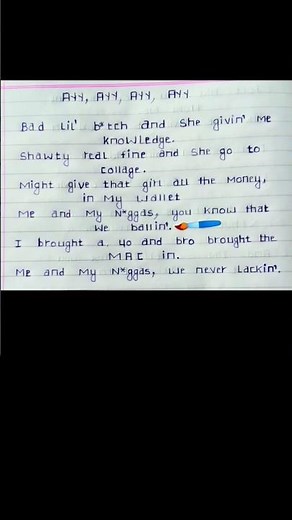 Ayy, Ayy, Ayy, Ayy
Bad Lil' b*tch and She givin' Me
Knowledge.
Shawty real fine and She go to
Collage.
Might give that girl all the Money,
in My Wallet
Me and My N*ggas, you know that
We ballin'.
I brought a 40 and bro brought the
MAC in.
Me and My N*ggas, We never Lackin'.